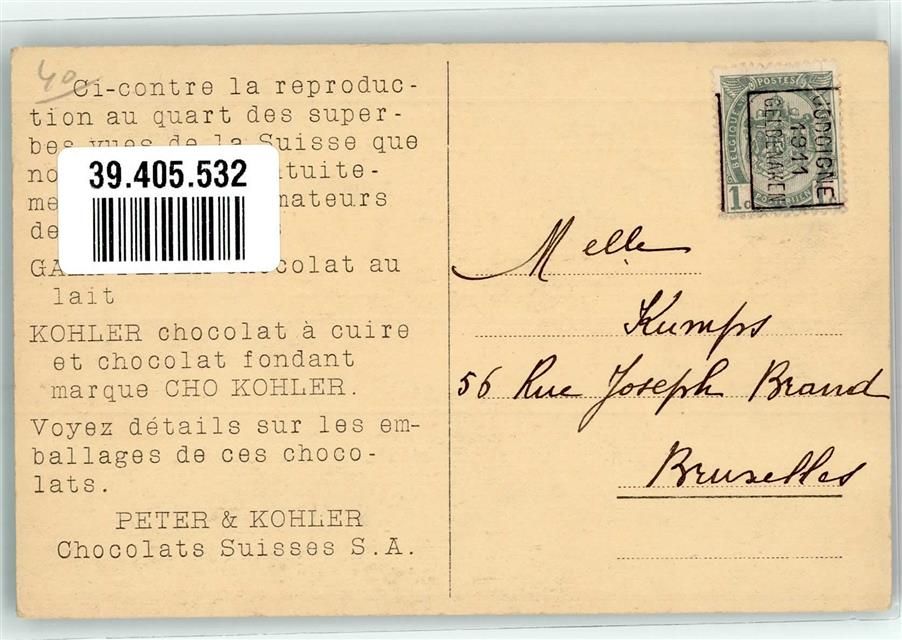 40
Ci-contre la reproduc-
tion au quart des super-
bes vues de la Suisse que
39.405.532
no tuite-
me mateurs
de s
GA PETER chocolat au
lait
KOHLER chocolat à cuire
et chocolat fondant
marque CHO KOHLER.
Voyez détails sur les em-
ballages de ces choco-
lats.
PETER & KOHLER
Chocolats Suisses S.A.
POSTES
BELGIQUE
1c
JODOIGNE
1911
GELDENAKEN
Melle
Kumps
56 Rue Joseph Brand
Bruxelles